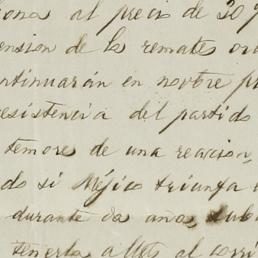 al precio de 30
ension de los remates
ontinuarán en novbre
resistencia del partido
temores de una reaccion,
do si Méjico triunfa
durante dos años,
tenerla al